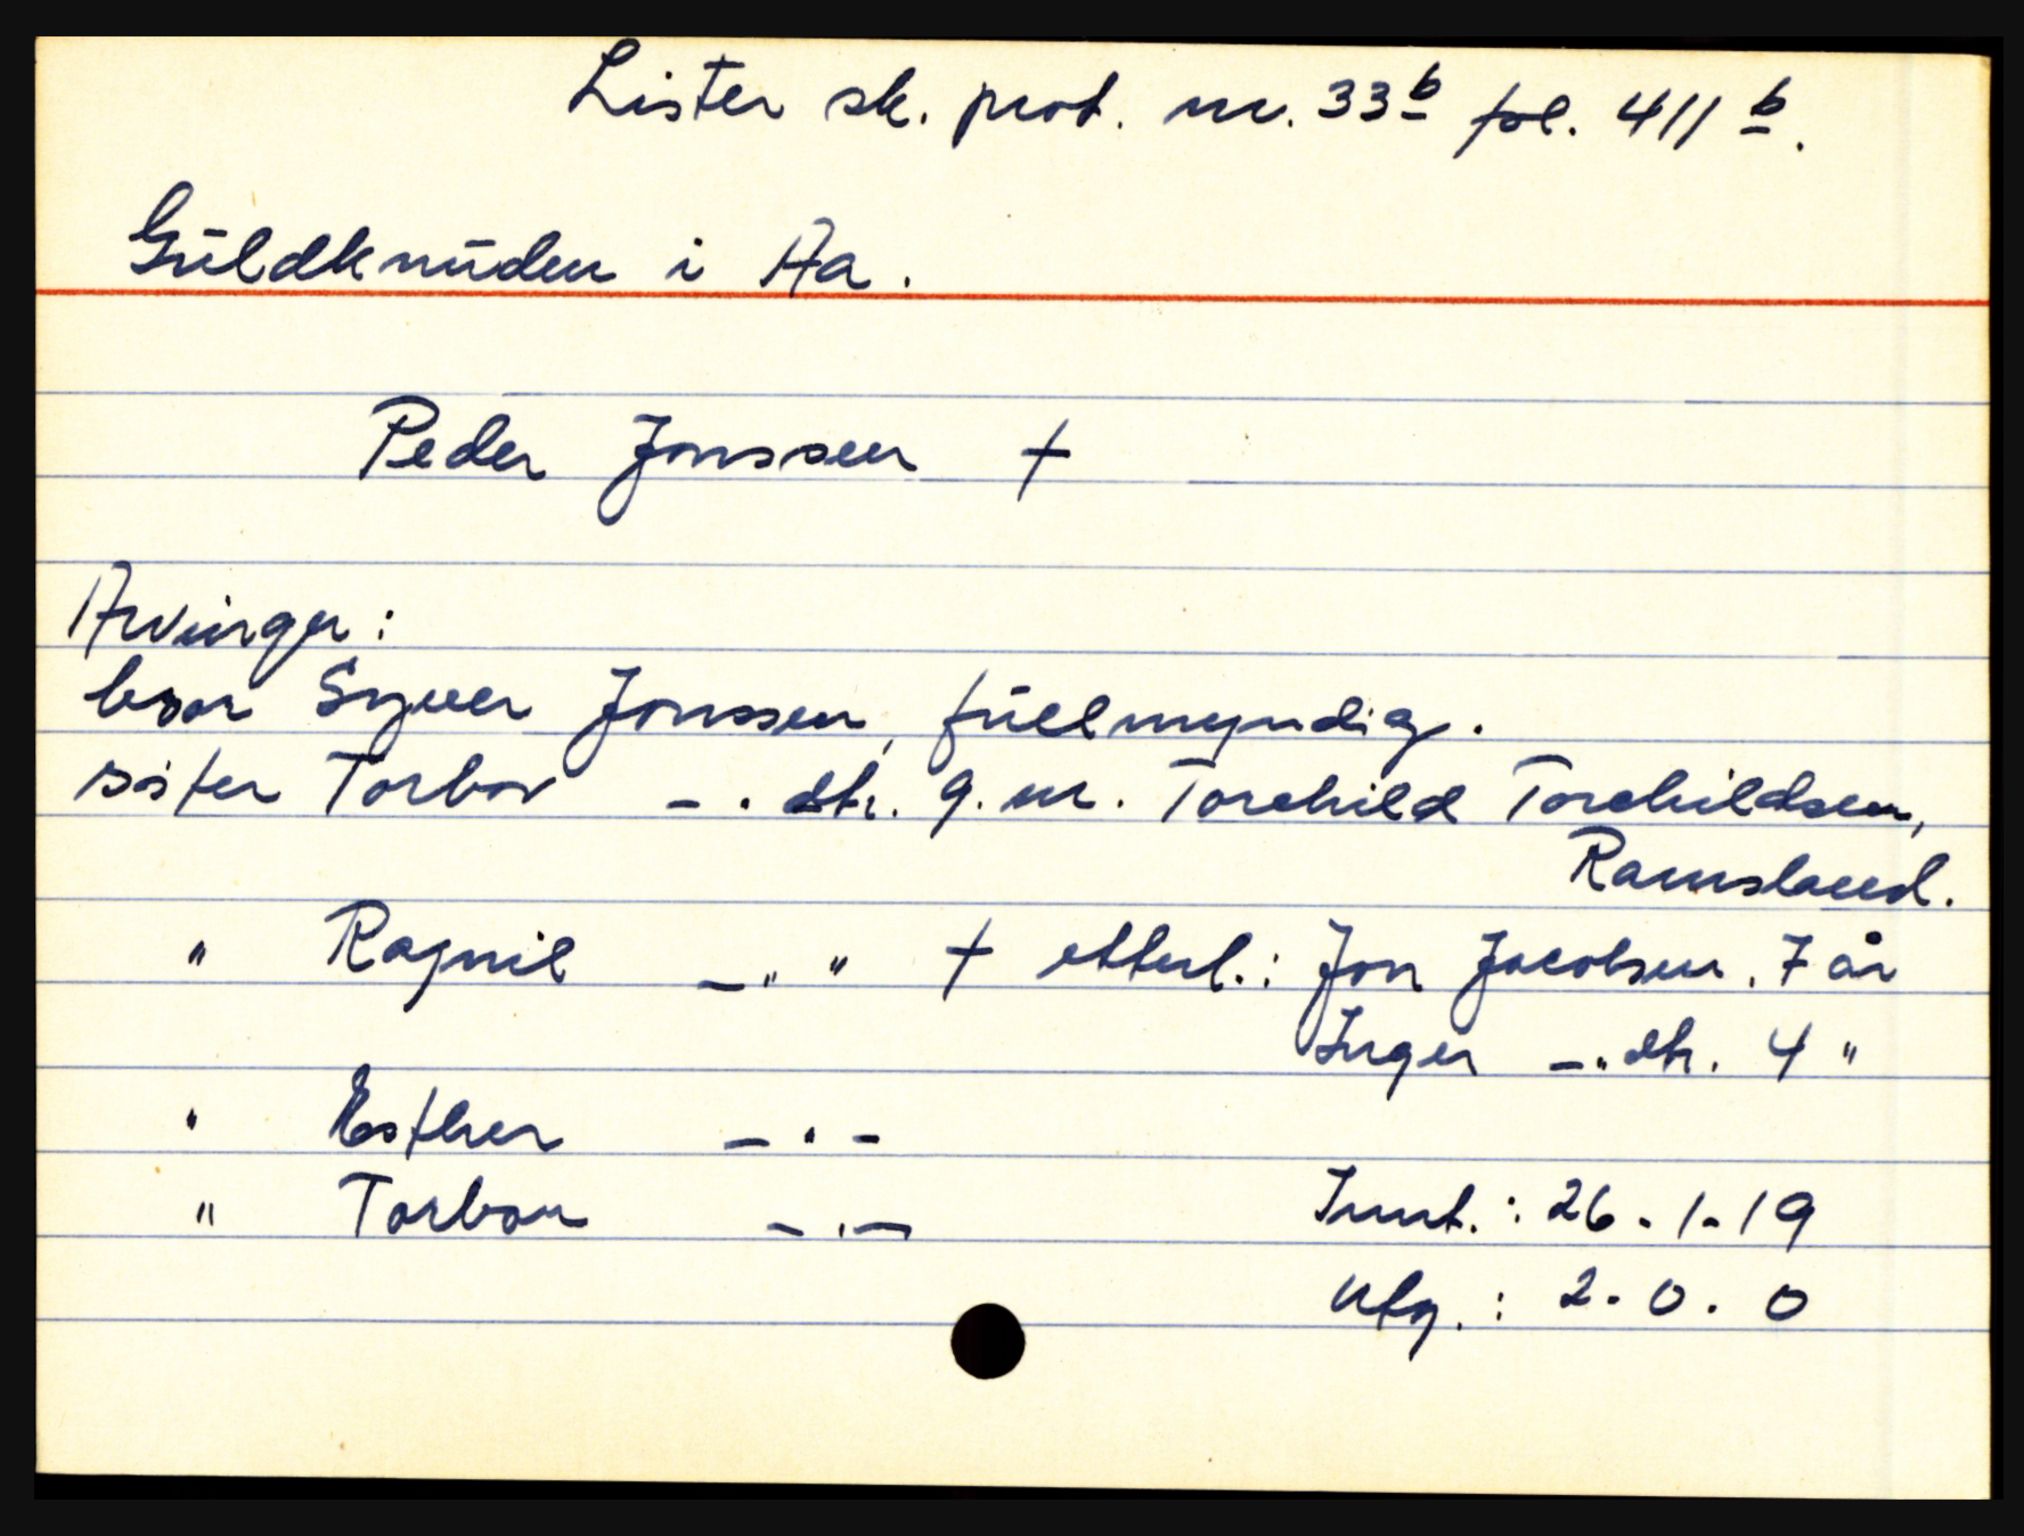 Lister sk. prot. nr. 33b fol. 411 b.
Guldknuden i Aa.
Peder Jonssen †
Arvinger:
bror Syver Jonssen, fullmyndig.
søster Torbor — . dtr. g.m. Torchild Torchildsen,
Ramsland.
" Ragnil — " " † etterl.: Jon Jacobsen. 7 år
Inger — " dtr. 4 "
" Esther — " —
" Torbor — " — Innt.: 26-1-19
Utg.: 2-0-0